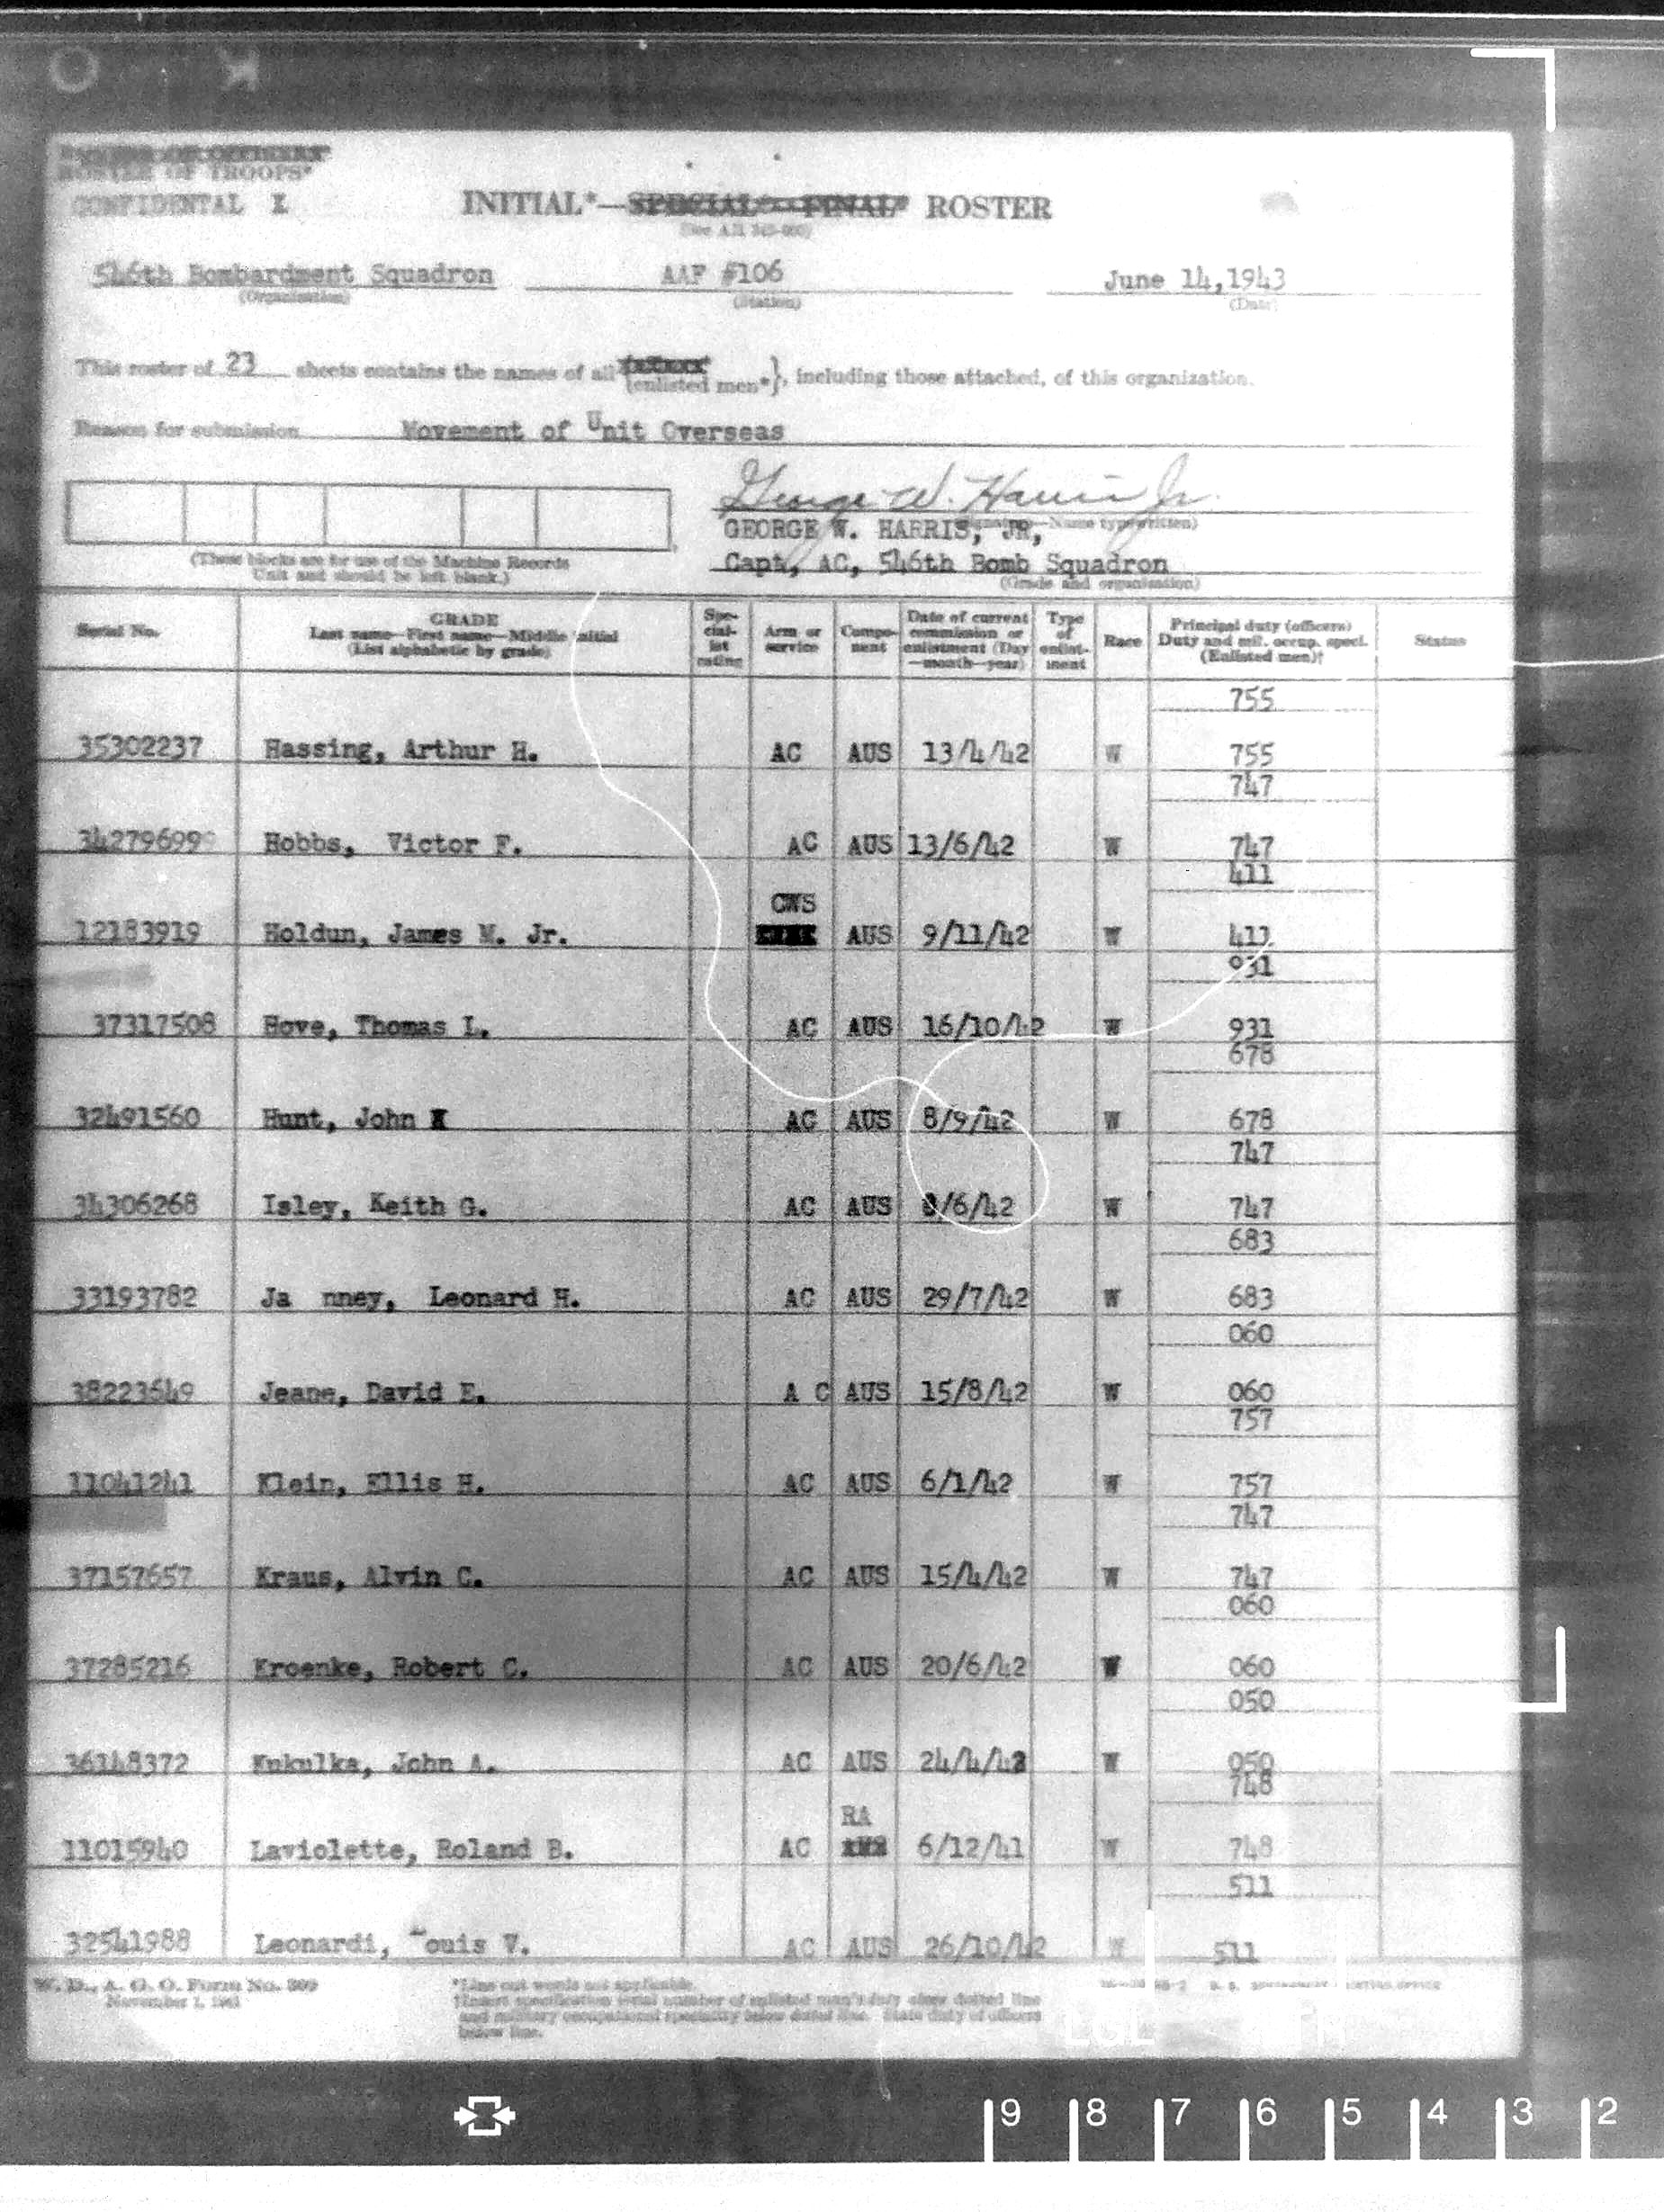 ROSTER OF TROOPS*
CONFIDENTAL I
INITIAL*—SPECIAL*—FINAL* ROSTER
(See AR 345-900)
546th Bombardment Squadron AAF #106 June 14,1943
(Organization) (Station) (Date)
This roster of 23 sheets contains the names of all {enlisted men*}, including those attached, of this organization.
Reason for submission Movement of Unit Overseas
George W. Harris Jr.
GEORGE W. HARRIS, JR, (Signature—Name typewritten)
Capt, AC, 546th Bomb Squadron
(Grade and organization)
(These blocks are for use of the Machine Records
Unit and should be left blank.)
Serial No. GRADE Last name—First name—Middle initial (List alphabetic by grade) Spe-cial-ist rating Arm or service Compo-nent Date of current commission or enlistment (Day—month—year) Type of enlist-ment Race Principal duty (officers) Duty and mil. occup. speci. (Enlisted men)† Status
755
35302237 Hassing, Arthur H. AC AUS 13/4/42 W 755
747
34279699 Hobbs, Victor F. AC AUS 13/6/42 W 747
411
CWS
12183919 Holdun, James M. Jr. AUS 9/11/42 W 411
931
37317508 Hove, Thomas L. AC AUS 16/10/42 W 931
678
32491560 Hunt, John AC AUS 8/9/42 W 678
747
34306268 Isley, Keith G. AC AUS 8/6/42 W 747
683
33193782 Ja nney, Leonard H. AC AUS 29/7/42 W 683
060
38223649 Jeane, David E. A C AUS 15/8/42 W 060
757
11041241 Klein, Ellis H. AC AUS 6/1/42 W 757
747
37157657 Kraus, Alvin C. AC AUS 15/4/42 W 747
060
37285216 Kroenke, Robert C. AC AUS 20/6/42 W 060
050
36148372 Kukulka, John A. AC AUS 24/4/42 W 050
748
RA
11015940 Laviolette, Roland B. AC 6/12/41 W 748
511
32541988 Leonardi, Louis V. AC AUS 26/10/42 W 511
W. D., A. G. O. Form No. 309
November 1, 1941
*Line out words not applicable.
†Insert specification serial number of enlisted men's duty above dotted line
and military occupational specialty below dotted line. State duty of officers
below line.
9 8 7 6 5 4 3 2